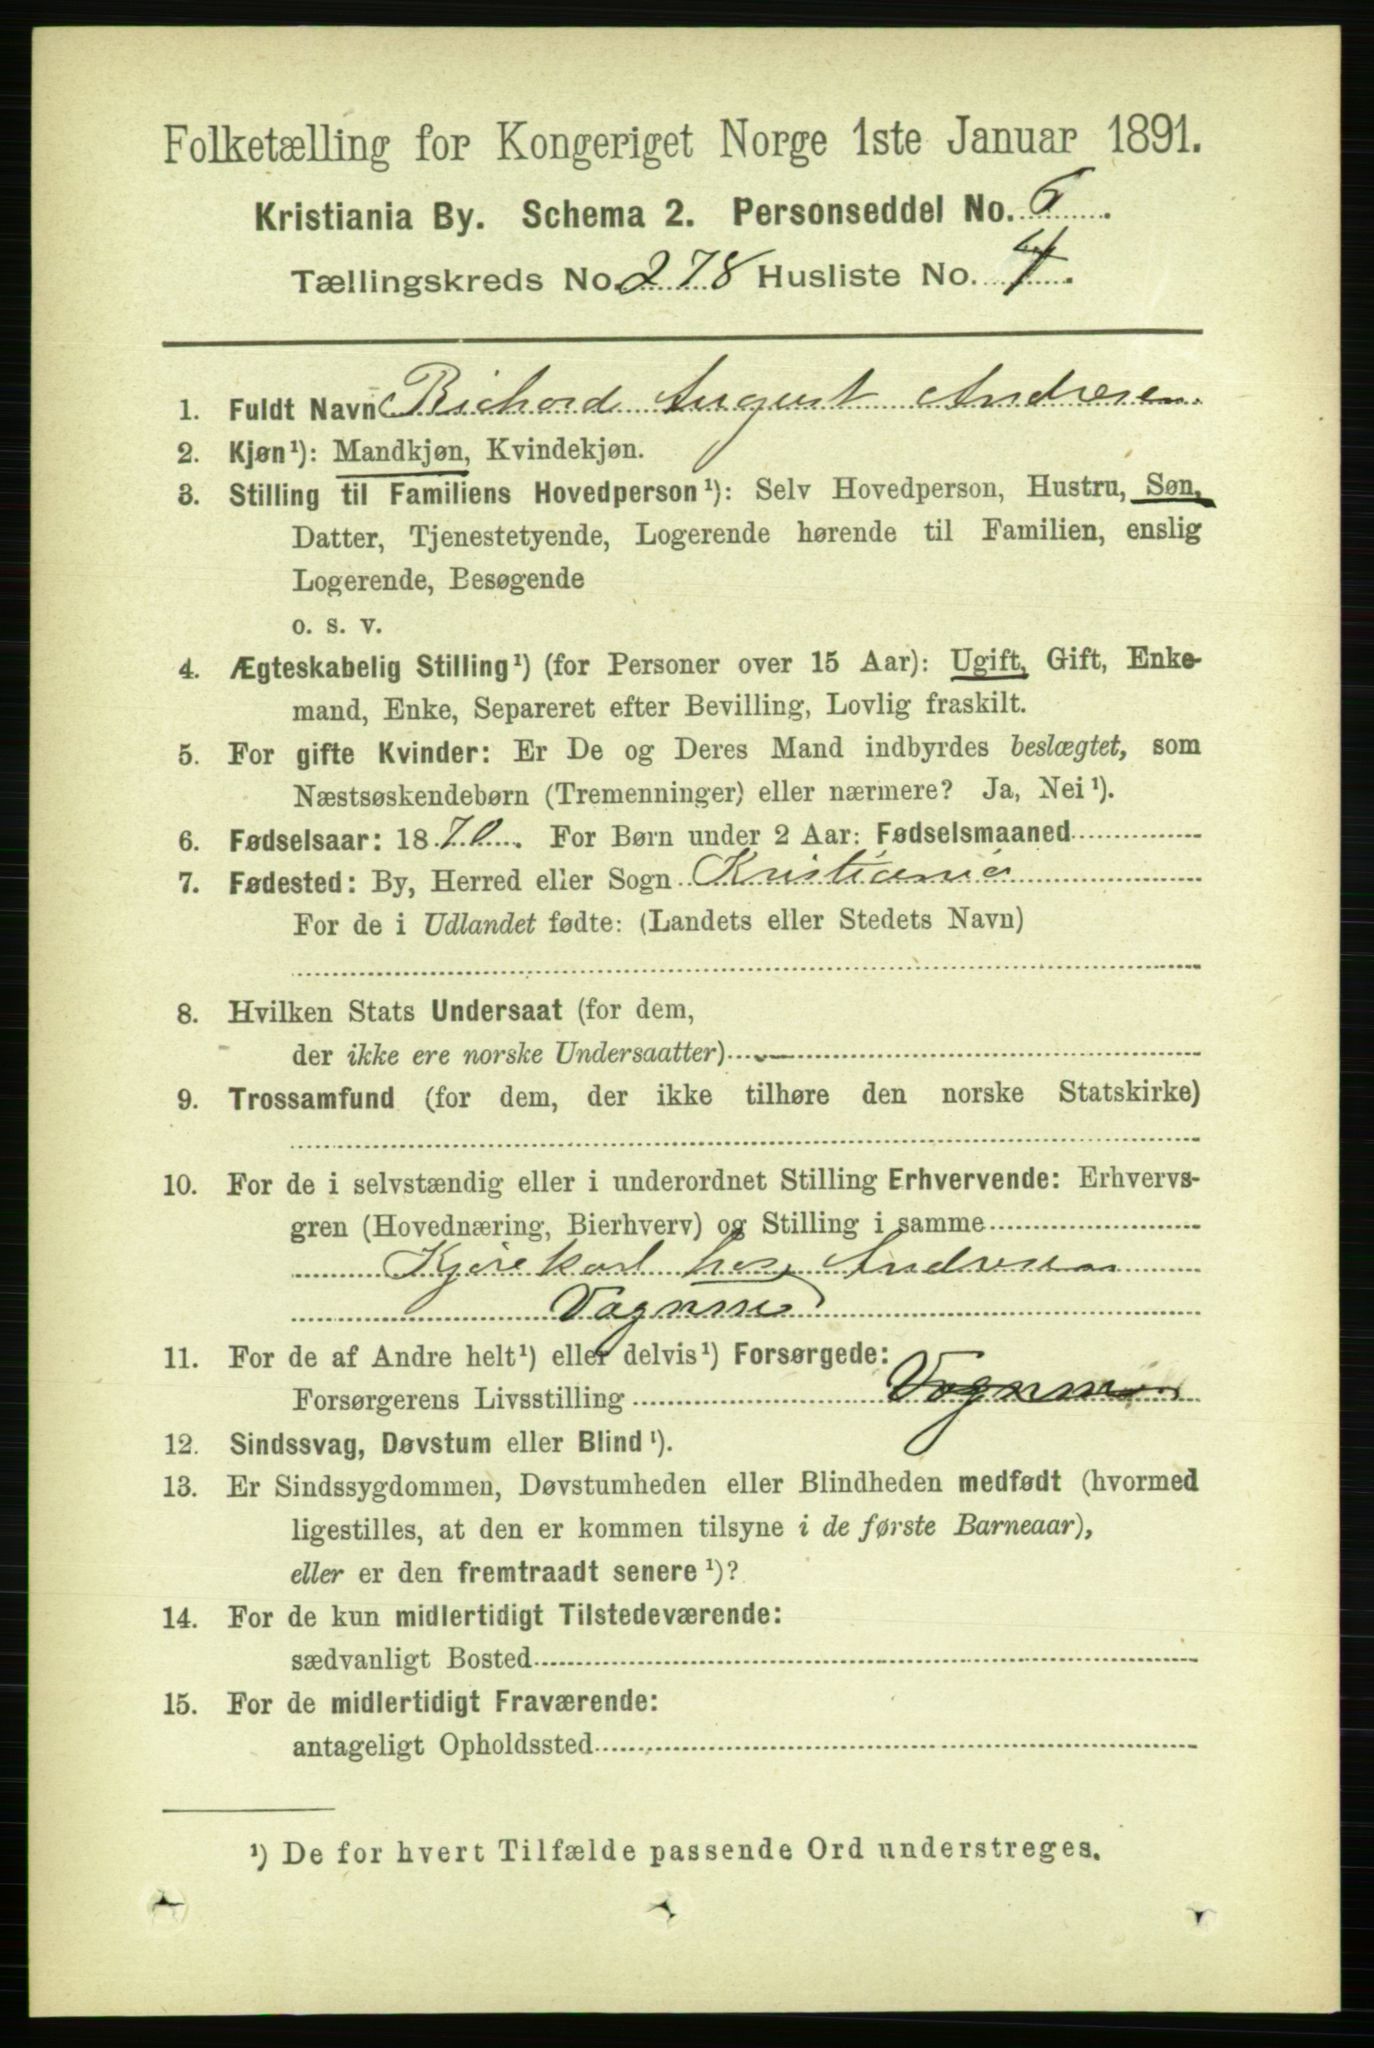 Folketælling for Kongeriget Norge 1ste Januar 1891.
Kristiania By. Schema 2. Personseddel No. 6.
Tællingskreds No. 278 Husliste No. 4.
1. Fuldt Navn Richard August Andresen
2. Kjøn¹): Mandkjøn, Kvindekjøn.
3. Stilling til Familiens Hovedperson¹): Selv Hovedperson, Hustru, Søn,
Datter, Tjenestetyende, Logerende hørende til Familien, enslig
Logerende, Besøgende
o. s. v.
4. Ægteskabelig Stilling¹) (for Personer over 15 Aar): Ugift, Gift, Enke-
mand, Enke, Separeret efter Bevilling, Lovlig fraskilt.
5. For gifte Kvinder: Er De og Deres Mand indbyrdes beslægtet, som
Næstsøskendebørn (Tremenninger) eller nærmere? Ja, Nei¹).
6. Fødselsaar: 1870. For Børn under 2 Aar: Fødselsmaaned
7. Fødested: By, Herred eller Sogn Kristiania
For de i Udlandet fødte: (Landets eller Stedets Navn)
8. Hvilken Stats Undersaat (for dem,
der ikke ere norske Undersaatter)
9. Trossamfund (for dem, der ikke tilhøre den norske Statskirke)
10. For de i selvstændig eller i underordnet Stilling Erhvervende: Erhvervs-
gren (Hovednæring, Bierhverv) og Stilling i samme
Kjørekarl hos Andresen
Vognm
11. For de af Andre helt¹) eller delvis¹) Forsørgede:
Forsørgerens Livsstilling Vognm
12. Sindssvag, Døvstum eller Blind¹).
13. Er Sindssygdommen, Døvstumheden eller Blindheden medfødt (hvormed
ligestilles, at den er kommen tilsyne i de første Barneaar),
eller er den fremtraadt senere¹)?
14. For de kun midlertidigt Tilstedeværende:
sædvanligt Bosted
15. For de midlertidigt Fraværende:
antageligt Opholdssted
¹) De for hvert Tilfælde passende Ord understreges.